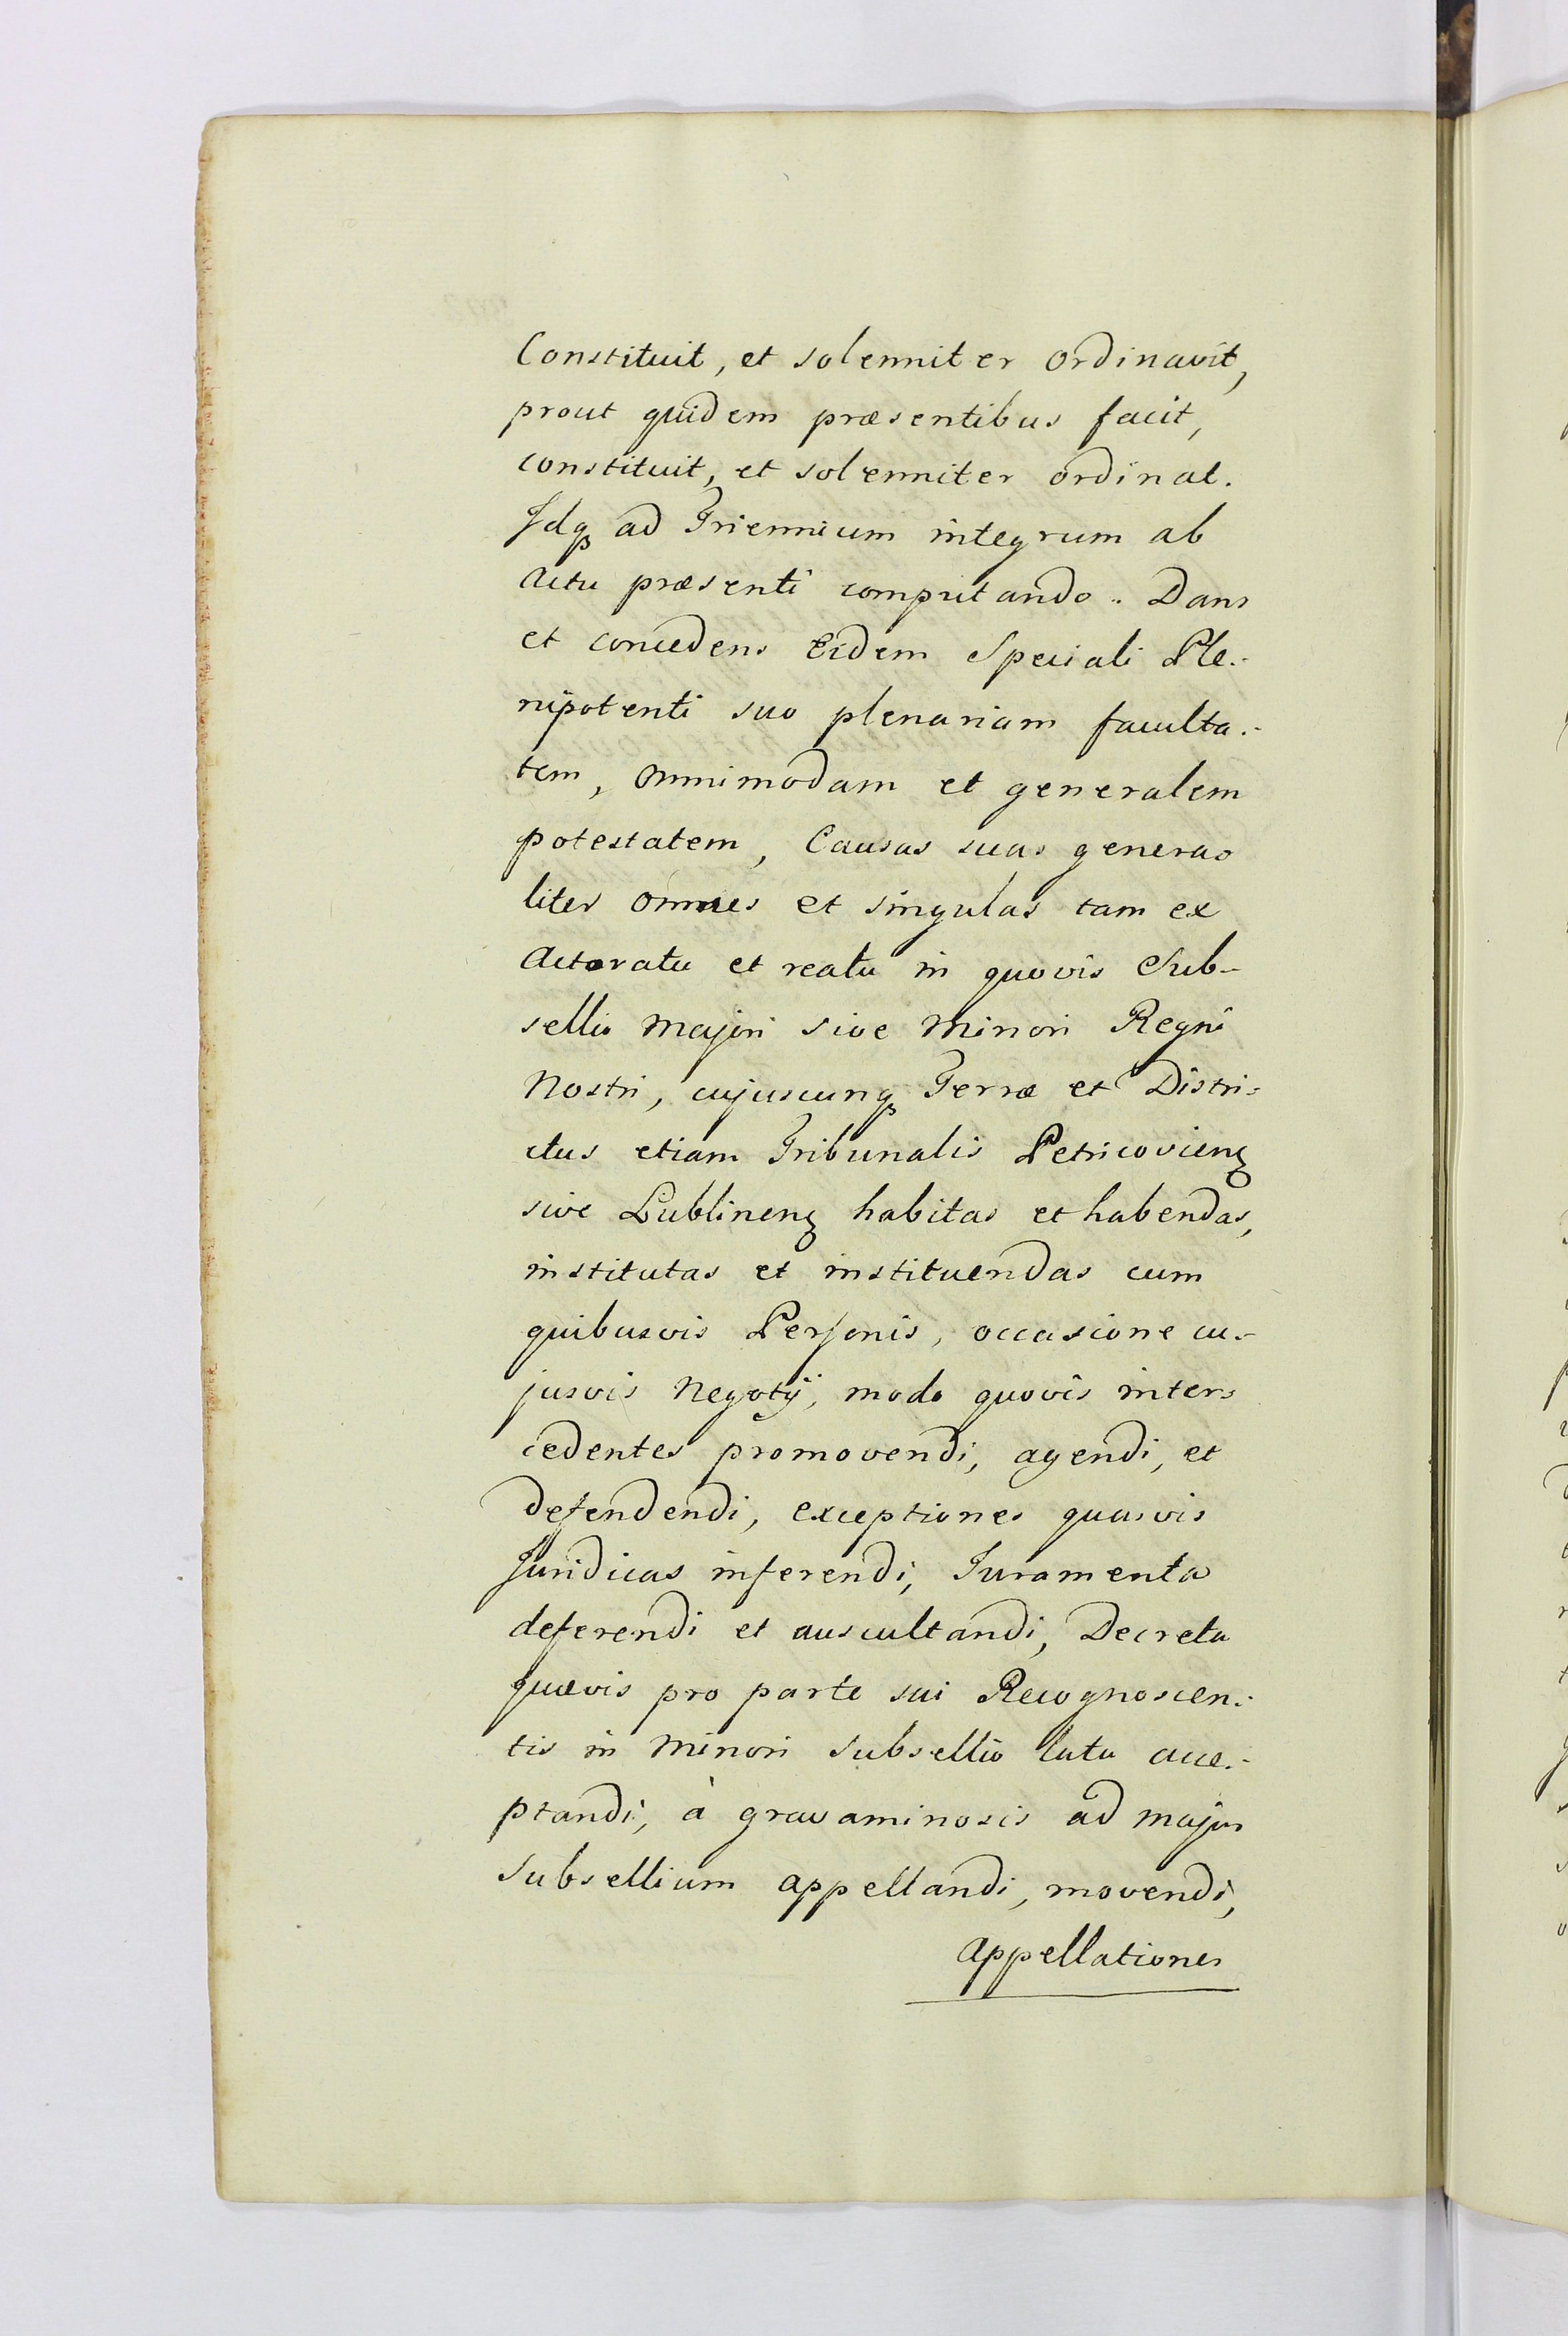 Constituit, et solenniter ordinavit,
prout quidem præsentibus facit,
constituit, et solenniter ordinat.
Idq₃ ad Triennium integrum ab
actu præsenti computando. Dans
et concedens Eidem Speciali Ple-
nipotenti suo plenariam faculta-
tem, omnimodam et generalem
potestatem, Causas suas genera-
liter omnes et singulas tam ex
Actoratu et reatu in quovis Sub-
sellio Majori sive Minori Regni
Nostri, cujuscunq₃ Terræ et Distri-
ctus etiam Tribunalis Petricovien₃
sive Lublinen₃ habitas et habendas,
institutas et instituendas cum
quibusvis Personis, occasione cu-
jusvis Negotÿ, modo quovis inter-
cedentes promovendi, agendi, et
defendendi, exceptiones quasvis
Juridicas inferendi, Juramenta
deferendi et auscultandi, Decreta
quævis pro parte sui Recognoscen-
tis in Minori Subsellio lata acce-
ptandi, à gravaminosis ad majus
Subsellium appellandi, movendi,
Appellationes